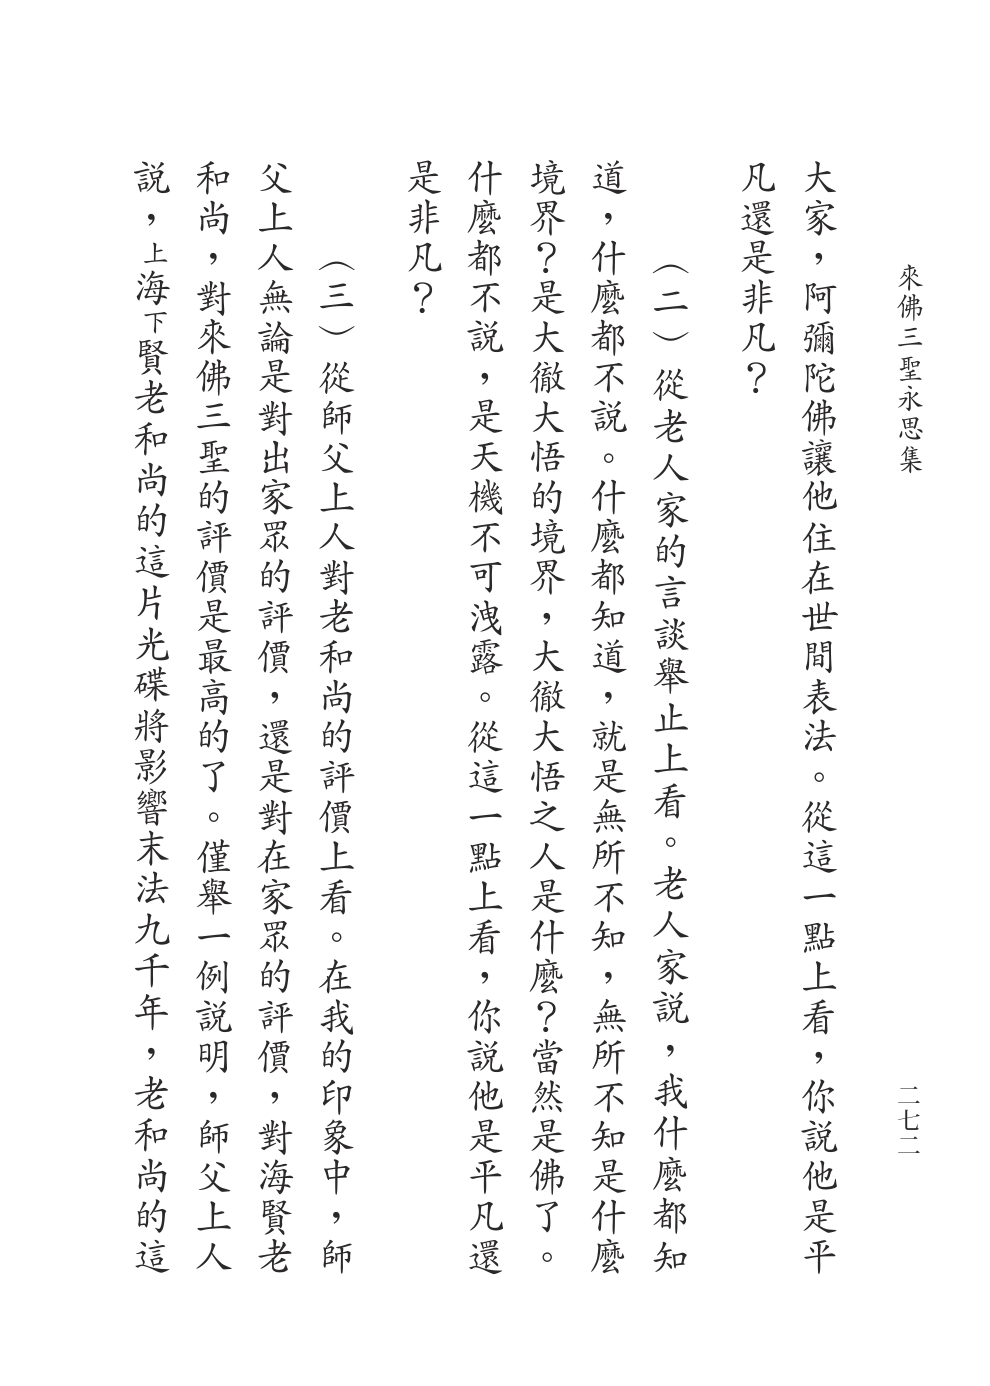 來佛三聖永思集
二七二
大家，阿彌陀佛讓他住在世間表法。從這一點上看，你説他是平
凡還是非凡？
（二）從老人家的言談舉止上看。老人家説，我什麼都知
道，什麼都不説。什麼都知道，就是無所不知，無所不知是什麼
境界？是大徹大悟的境界，大徹大悟之人是什麼？當然是佛了。
什麼都不説，是天機不可洩露。從這一點上看，你説他是平凡還
是非凡？
（三）從師父上人對老和尚的評價上看。在我的印象中，師
父上人無論是對出家眾的評價，還是對在家眾的評價，對海賢老
和尚，對來佛三聖的評價是最高的了。僅舉一例説明，師父上人
説，上海下賢老和尚的這片光碟將影響末法九千年，老和尚的這